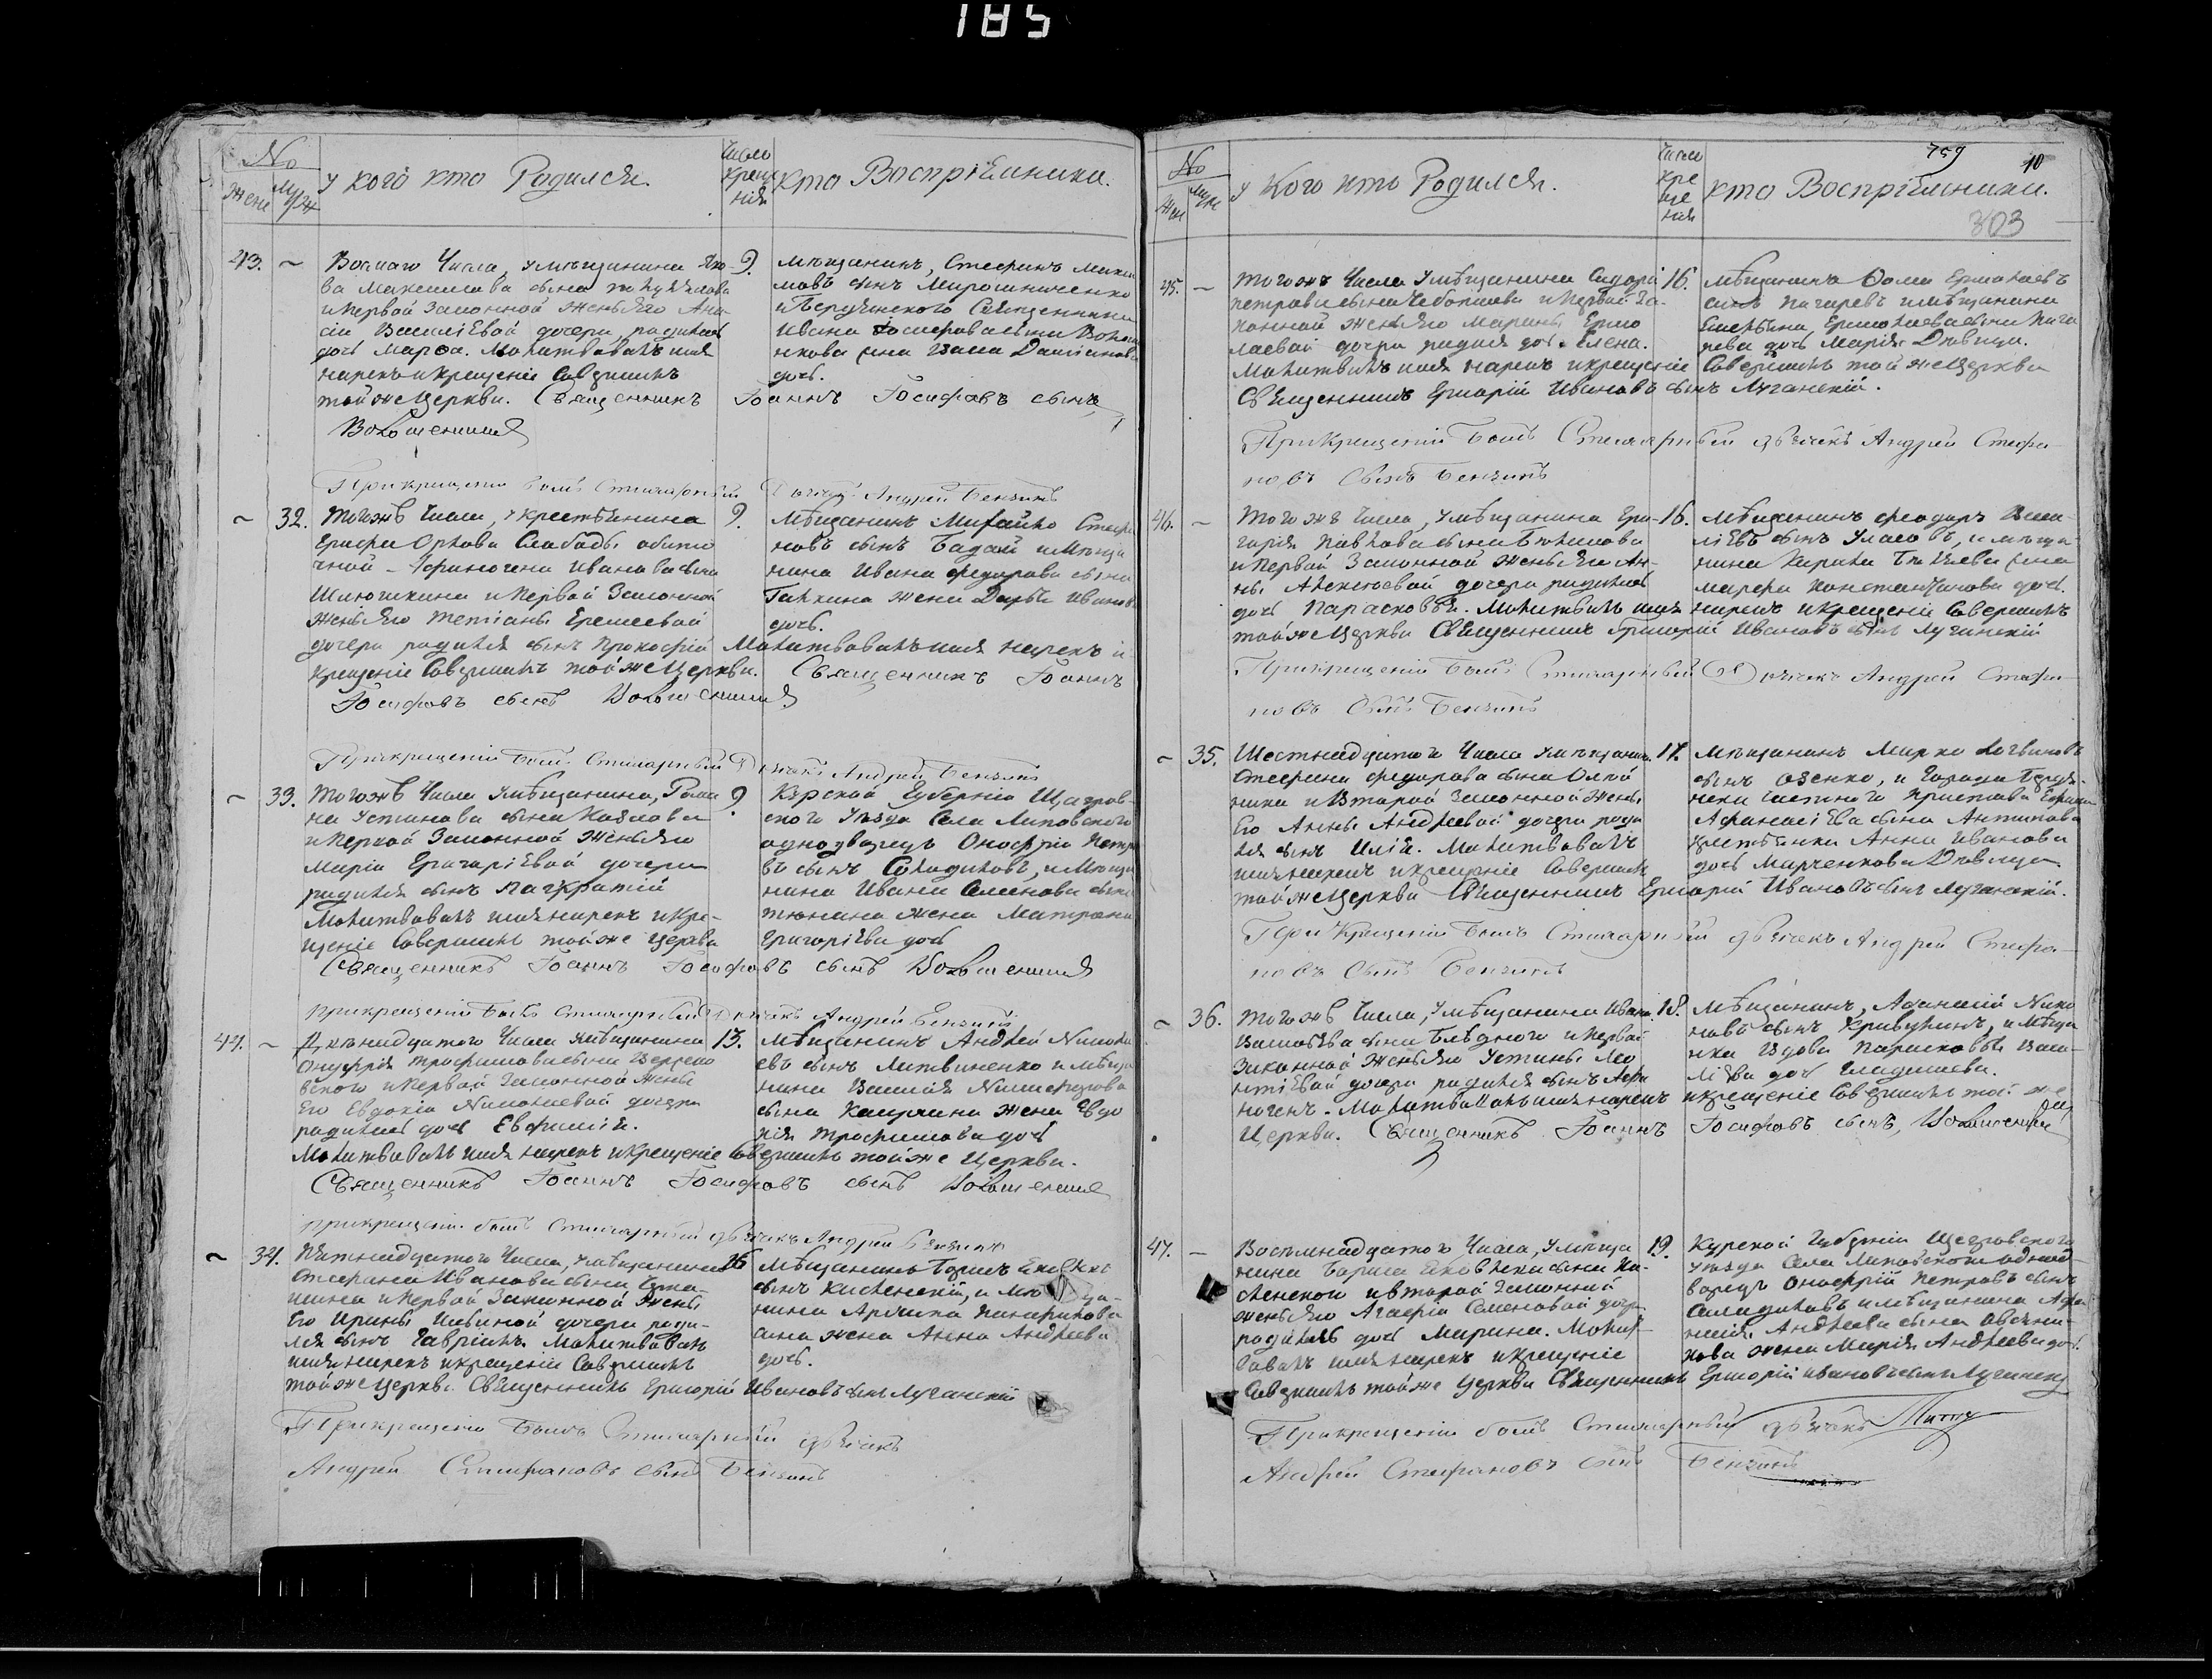 185
No
Жен Муж
У кого кто Родился.
Число Крещения
кто Воспрiемники.
43. ~ Восмаго Числа, умѣщанина Яко-
ва Максимова сына
и Первой Законной жены его Ана-
сiи Василiевой дочери, родилась
дочь Марѳа. Молитвовалъ имя
нарекъ и крещенiе Совершилъ
тойже Церкви. Священникъ Iоаннъ Iосифовъ сынъ
Волошенниковъ
9. мѣщанинъ, Стефанъ Макси
мовъ сынъ Мирошниченко
и Бердянского Священника
Ивана Iосифова сына Волоше
нкова Анна Дамiанова
дочь.
При крещенiи былъ Стихарный Дьячекъ Андрей Бензинъ
~ 32. Тогожъ Числа, у крестьянина
Орлова Слободы обыто
чной Афиногена Иванова сына
Шлюшкина и Первой Законной
жены его Тетiаны Еремеевой
дочери родился сынъ Прокофiй Молитвовалъ имя нарекъ и
крещенiе Совершилъ тойже Церкви. Священникъ Iоаннъ
Iосифовъ сынъ Волошенниковъ
9. Мѣщанинъ Михайло Стефа
новъ сынъ Бадай и Мѣща
нина Ивана Федорова сына
Галкина жена Дарья Иванова
дочь.
При крещенiи былъ Стихарный Дьячекъ Андрей Бензинъ
~ 33. Тогожъ Числа умѣщанина, Рома
на Устинова сына
и Первой Законной жены его
Марiи Григорiевой дочери
родился сынъ Панкратiй
Молитвовалъ имя нарекъ и Кре-
щенiе Совершилъ тойже Церкви
Священникъ Iоаннъ Iосифовъ сынъ Волошенниковъ
9 Курской Губернiи Щигров-
ского Уѣзда Села Липовского
однодворецъ Онофрiй Петро
въ сынъ Солодиловъ, и Мѣща
нина Ивана Семенова сына
Тюнина жена Матрона
Григорiева дочь
При крещенiи былъ Стихарный Дьячекъ Андрей Бензинъ
44. ~ Двѣнадцатого Числа умѣщанина
Онуфрiя Трофимова сына
вского и Первой Законной жены
Его Евдокiи Николаевой дочери
родилась дочь Евфимiя.
Молитвовалъ имя нарекъ и крещенiе Совершилъ тойже Церкви.
Священникъ Iоаннъ Iосифовъ сынъ Волошенниковъ
13. Мѣщанинъ Андрей Никола
евъ сынъ Литвиненко и мѣща
нина Василiя Никифорова
сына Кащина жена Евдо
кiя Трофимова дочь
При крещенiи былъ Стихарный дьячекъ Андрей Бензинъ
~ 34. Пятнадцатого Числа, умѣщанина
Стефана Иванова сына
шина и Первой Законной жены
Его Ирины Ильиной дочери роди-
лся сынъ Гаврiилъ. Молитвовалъ
имя нарекъ и крещенiе Совершилъ
тойже Церкви. Священникъ Григорiй Ивановъ сынъ Луганскiй
16 Мѣщанинъ Борисъ Яковлевъ
сынъ Кисленскiй, и мѣща-
нина Архипа Панфилова
сына жена Анна Андреева
дочь.
При крещенiи былъ Стихарный дьячекъ
Андрей Стефановъ сынъ Бензинъ
No
Жен Муж
У Кого кто Родился.
Число крещения
кто Воспрiемники.
759
10
303
45. ~ Тогожъ Числа умѣщанина Сидора
Петрова сына Чеботаева и Первой За-
конной жены его Марины Ермо
лаевой дочери родилась дочь Елена.
Молитвовалъ имя нарекъ и крещенiе Совершилъ тойже Церкви
Священникъ Григорiй Ивановъ сынъ Луганскiй.
16. Мѣщанинъ Ѳома Ермолаевъ
сынъ Пагаревъ и мѣщанина
Ермолаева сына Пага
рева дочь Марiя Дѣвица.
При Крещенiи былъ Стихарный дьячекъ Андрей Стефа-
новъ Сынъ Бензинъ
46. ~ Тогожъ Числа, умѣщанина Гри-
горiя Павлова сына
и Первой Законной жены его Ан-
ны Алексѣевой дочери родилась
дочь Парасковья. Молитвовалъ имя нарекъ и крещенiе Совершилъ
тойже Церкви Священникъ Григорiй Ивановъ сынъ Луганскiй
16. Мѣщанинъ Феодоръ Васи-
лiевъ сынъ Уласовъ, и мѣща-
нина Кирила сына
Марфа Константинова дочь.
При крещенiи былъ Стихарный Дьячекъ Андрей Стефа-
новъ Сынъ Бензинъ
~ 35. Шестнадцатого Числа умѣщанина
Стефана Федорова сына Олей
ника и Второй Законной жены
Его Анны Андреевой дочери роди
лся сынъ Илiя. Молитвовалъ
имя нарекъ и крещенiе Совершилъ
тойже Церкви Священникъ Григорiй Ивановъ сынъ Луганскiй.
17. Мѣщанинъ Марко Логвиновъ
сынъ и Города Бердян-
ска частного Пристава
Афанасiева сына Антипова
Анна Иванова
дочь Марченкова Дѣвица.
При Крещенiи былъ Стихарный дьячекъ Андрей Стефа-
новъ Сынъ Бензинъ
~ 36. Тогожъ Числа, умѣщанина Ивана
Василiева сына Блѣдного и Первой
Законной жены его Устины Лео
нтiевой дочери родился сынъ Афи
ногенъ. Молитвовалъ имя нарекъ и крещенiе Совершилъ той же
Церкви. Священникъ Iоаннъ Iосифовъ сынъ, Волошенниковъ
18. Мѣщанинъ, Аѳанасiй Нико
новъ сынъ Кривцунъ, и Мѣща
нка Вдова Парасковья Васи-
лiева дочь Гладышева.
47. ~ Восемнадцатого Числа, умѣща
нина Бориса Яковлева сына Ки-
сленского и второй Законной
жены его Агафiи Семеновой дочери
родилась дочь Марина. Молит-
вовалъ имя нарекъ и крещенiе
Совершилъ тойже Церкви Священникъ Григорiй Ивановъ сынъ Луганскiй
19. Курской Губернiи Щигровского
уѣзда Села Липовского однод-
ворецъ Онофрiй Петровъ сынъ
Солодиловъ и мѣщанина Афа
насiя Андреева сына Овсянни-
кова жена Марiя Андреева дочь.
При крещенiи былъ Стихарный дьячекъ
Андрей Стефановъ сынъ Бензинъ